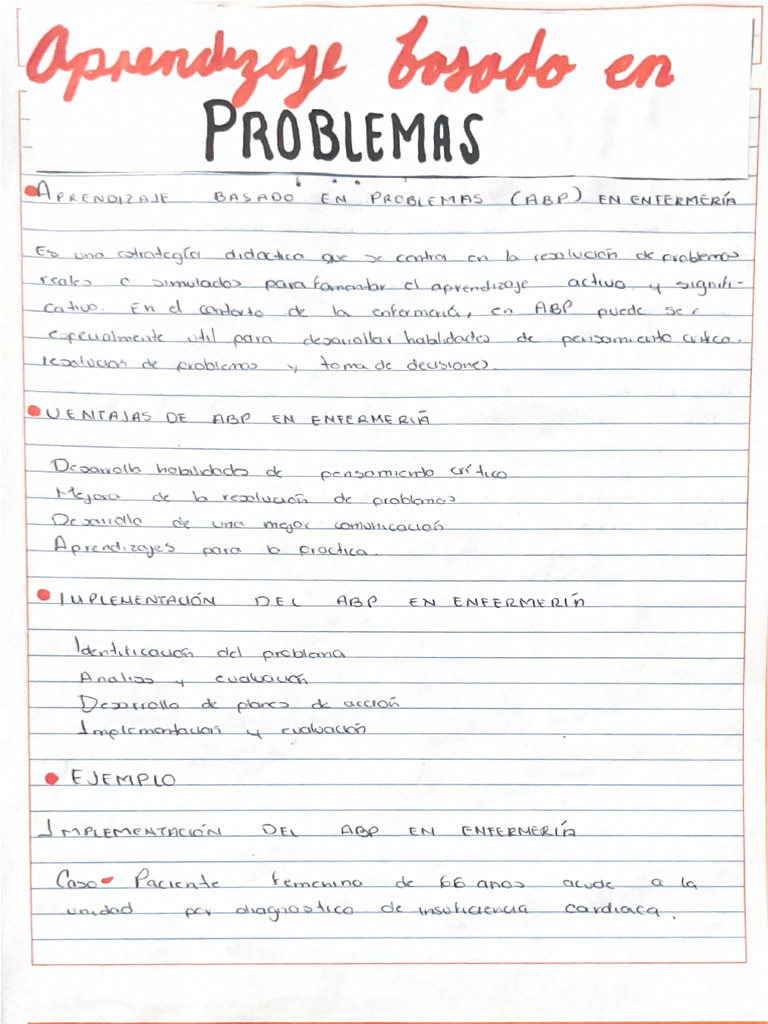 Aprendizaje basado en
PROBLEMAS
APRENDIZAJE BASADO EN PROBLEMAS (ABP) EN ENTERMERÍA
Es una estrategía didactica que se centra en la resolución de problemas
reales o simulados para fomentar el aprendizaje activo y signifi-
cativo. En el contexto de la enfermería, en ABP puede ser
especialmente util para desarrollar habilidades de pensamiento critico.
resolucion de problemas y toma de decisiones.
VENTAJAS DE ABP EN ENFERMERIÁ
Desarrolla habilidades de pensamiento crítico
Mejora de la resolución de problemas
Desarrollo de una mejor comunicación
Aprendizajes para la practica.
IMPLEMENTACIÓN DEL ABP EN ENFERMERÍA
Identificación del problema
Analisis y evaluación
Desarrollo de planes de acción
Implementación y evaluación
EJEMPLO
IMPLEMENTACIÓN DEL ABP EN ENFERMERÍA
Caso Paciente femenino de 66 años acude a la
unidad por diagnostico de insuficiencia cardiaca.